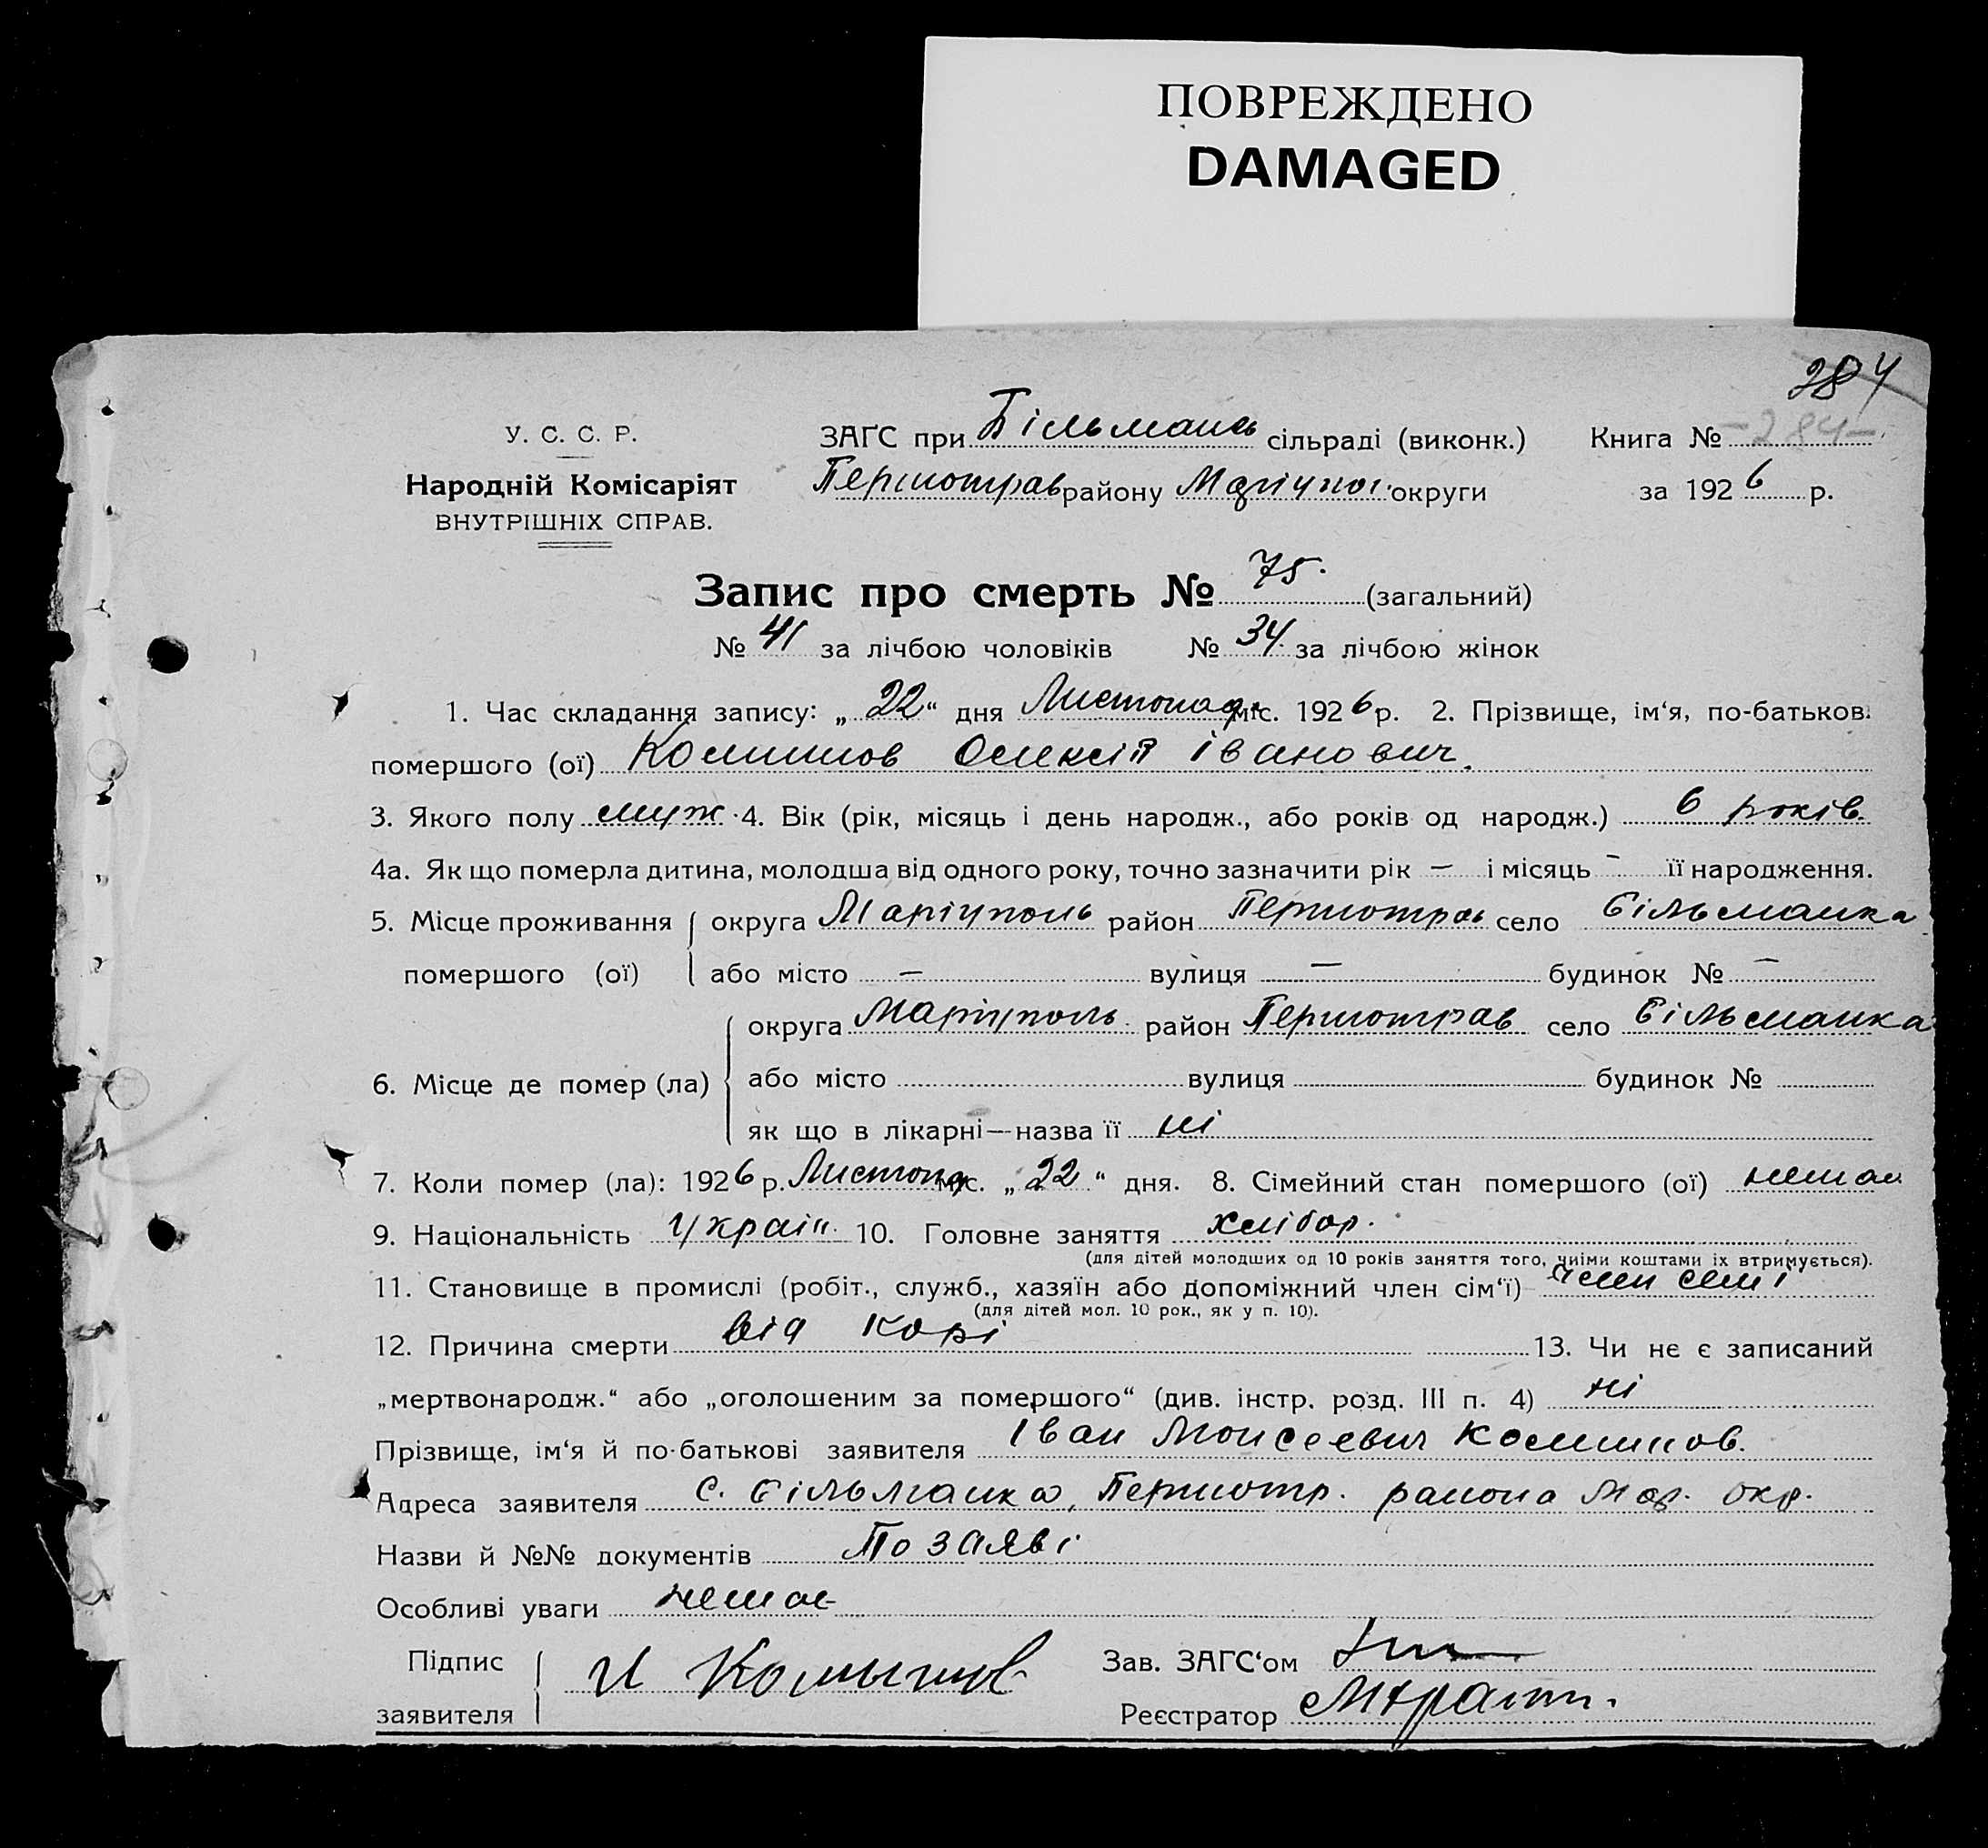 ПОВРЕЖДЕНО
DAMAGED
284
У. С. С. Р.
ЗАГС при Більмансь сільраді (виконк.) Книга № -284-
Народній Комісаріят
Першотрав району Маріупол. округи за 1926 р.
ВНУТРІШНІХ СПРАВ.
Запис про смерть № 75. (загальний)
№ 41 за лічбою чоловіків № 34. за лічбою жінок
1. Час складання запису: „22“ дня Листопад міс. 1926 р. 2. Прізвище, ім‘я, по-батькові
помершого (ої) Комишов Олексій Іванович.
3. Якого полу муж. 4. Вік (рік, місяць і день народж., або років од народж.) 6 років.
4а. Як що померла дитина, молодша від одного року, точно зазначити рік — і місяць — її народження.
5. Місце проживання округа Маріуполь район Першотрав село Більманка
помершого (ої) або місто — вулиця — будинок № —
округа Маріуполь район Першотрав село Більманка
6. Місце де помер (ла) або місто вулиця будинок №
як що в лікарні—назва її ні
7. Коли помер (ла): 1926 р. Листопад міс. „22“ дня. 8. Сімейний стан помершого (ої) немає
9. Національність Україн. 10. Головне заняття хлібор.
(для дітей молодших од 10 років заняття того, чиїми коштами їх втримується).
11. Становище в промислі (робіт., служб., хазяїн або допоміжний член сім‘ї) член семї
(для дітей мол. 10 рок., як у п. 10).
12. Причина смерти від корі 13. Чи не є записаний
„мертвонародж.“ або „оголошеним за помершого“ (див. інстр. розд. III п. 4) ні
Прізвище, ім‘я й по-батькові заявителя Іван Моисеевич Комишов.
Адреса заявителя с. Більманка, Першотр. району Мар. окр.
Назви й №№ документів По заяві
Особливі уваги немає
Підпис И Комышов Зав. ЗАГС‘ом
заявителя Реєстратор